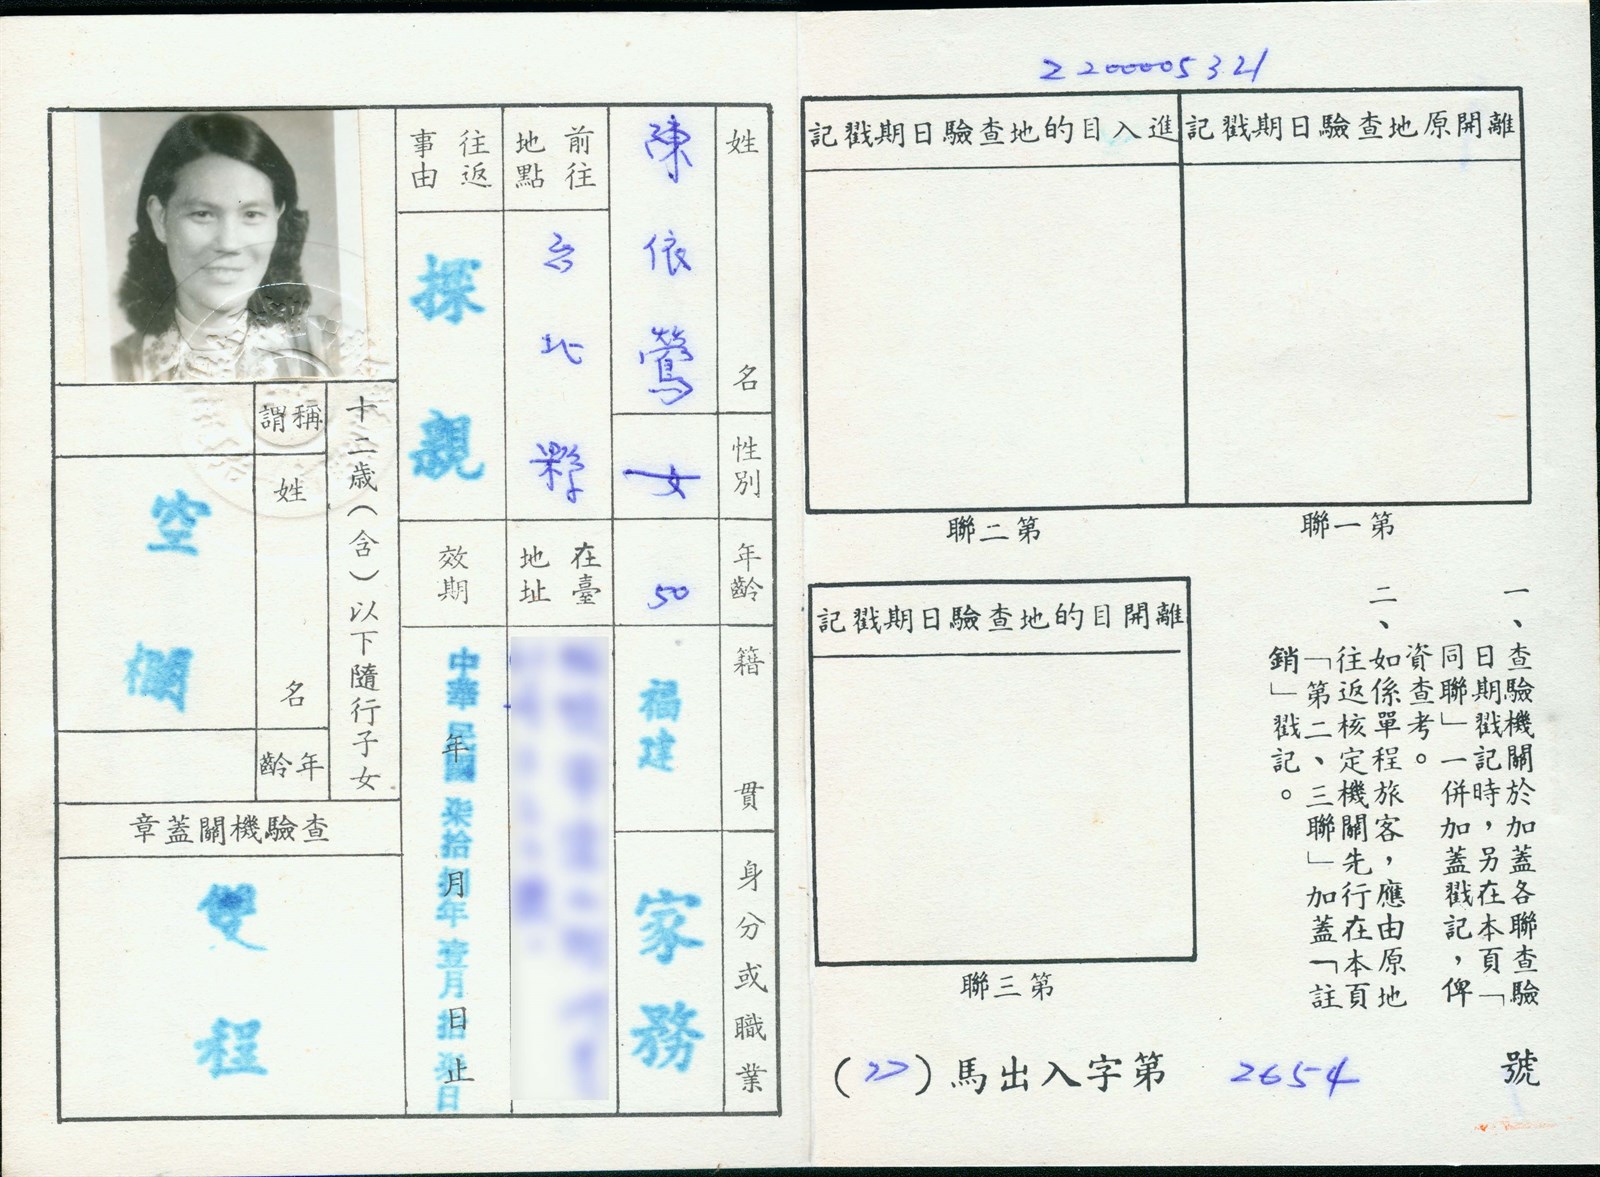 2200005321
離開原地查驗日期戳記
進入目的地查驗日期戳記
第一聯
第二聯
離開目的地查驗日期戳記
第三聯
一、查驗機關於加蓋各聯查驗
日期戳記時，另在本頁「
同聯」一併加蓋戳記，俾
資查考。
二、如係單程旅客，應由原地
往返核定機關先行在本頁
「第二、三聯」加蓋「註
銷」戳記。
(77)馬出入字第 2654 號
姓名
陳依鶯
性別
女
年齡
50
籍貫
福建
身分或職業
家務
前往地點
台北縣
在臺地址
往返事由
探親
效期
年月日止
中華民國柒拾捌年壹月拾柒日
十二歲(含)以下隨行子女
稱謂
姓名
年齡
空欄
查驗機關蓋章
雙程